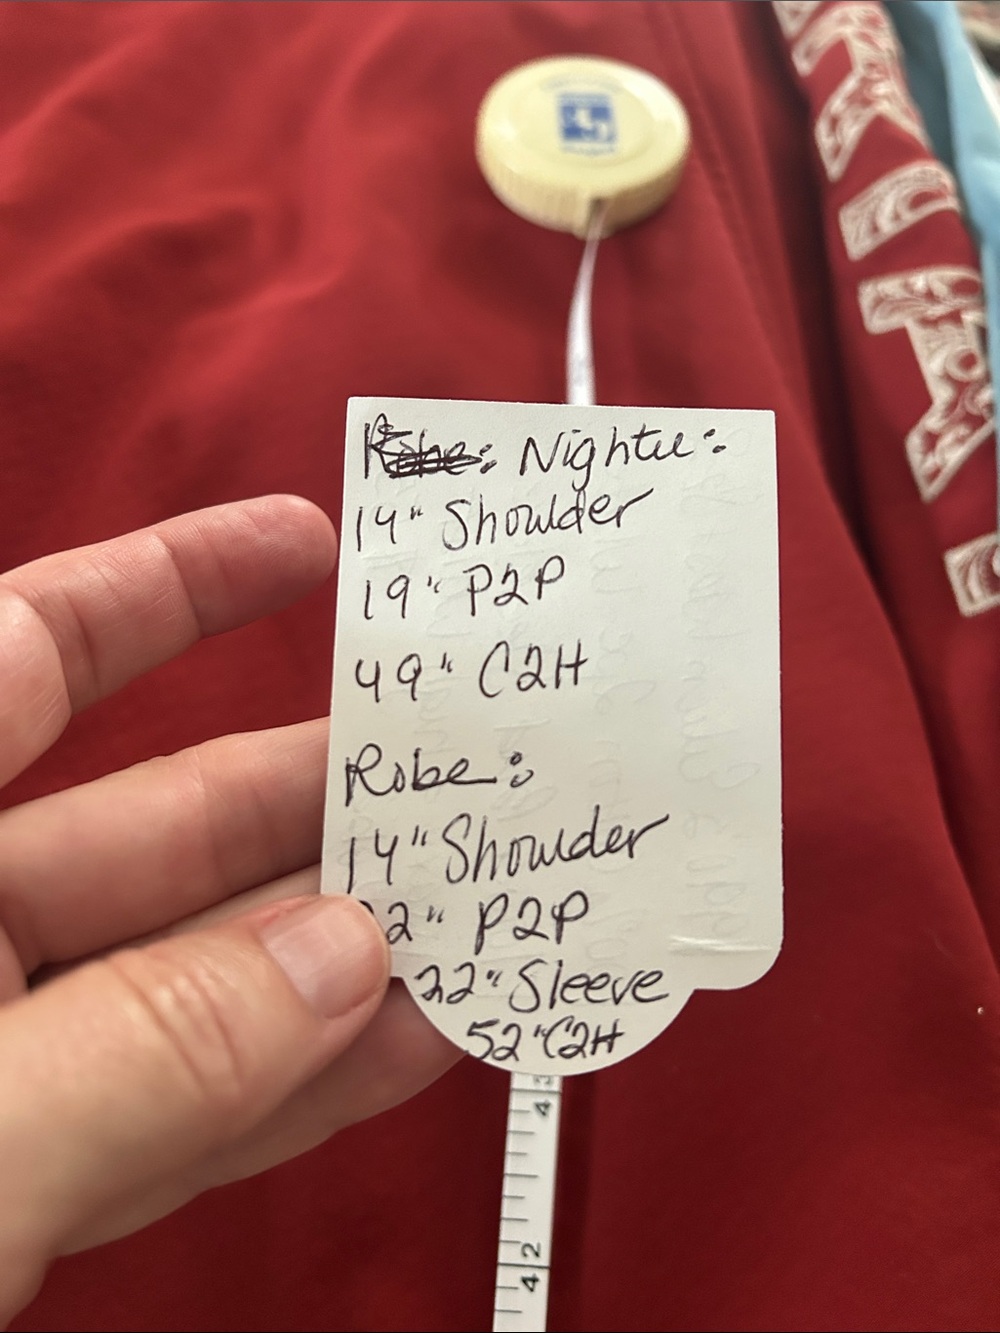 Robe: Nightie:
14" Shoulder
19" P2P
49" C2H
Robe:
14" Shoulder
22" P2P
22" Sleeve
52" C2H
43
42